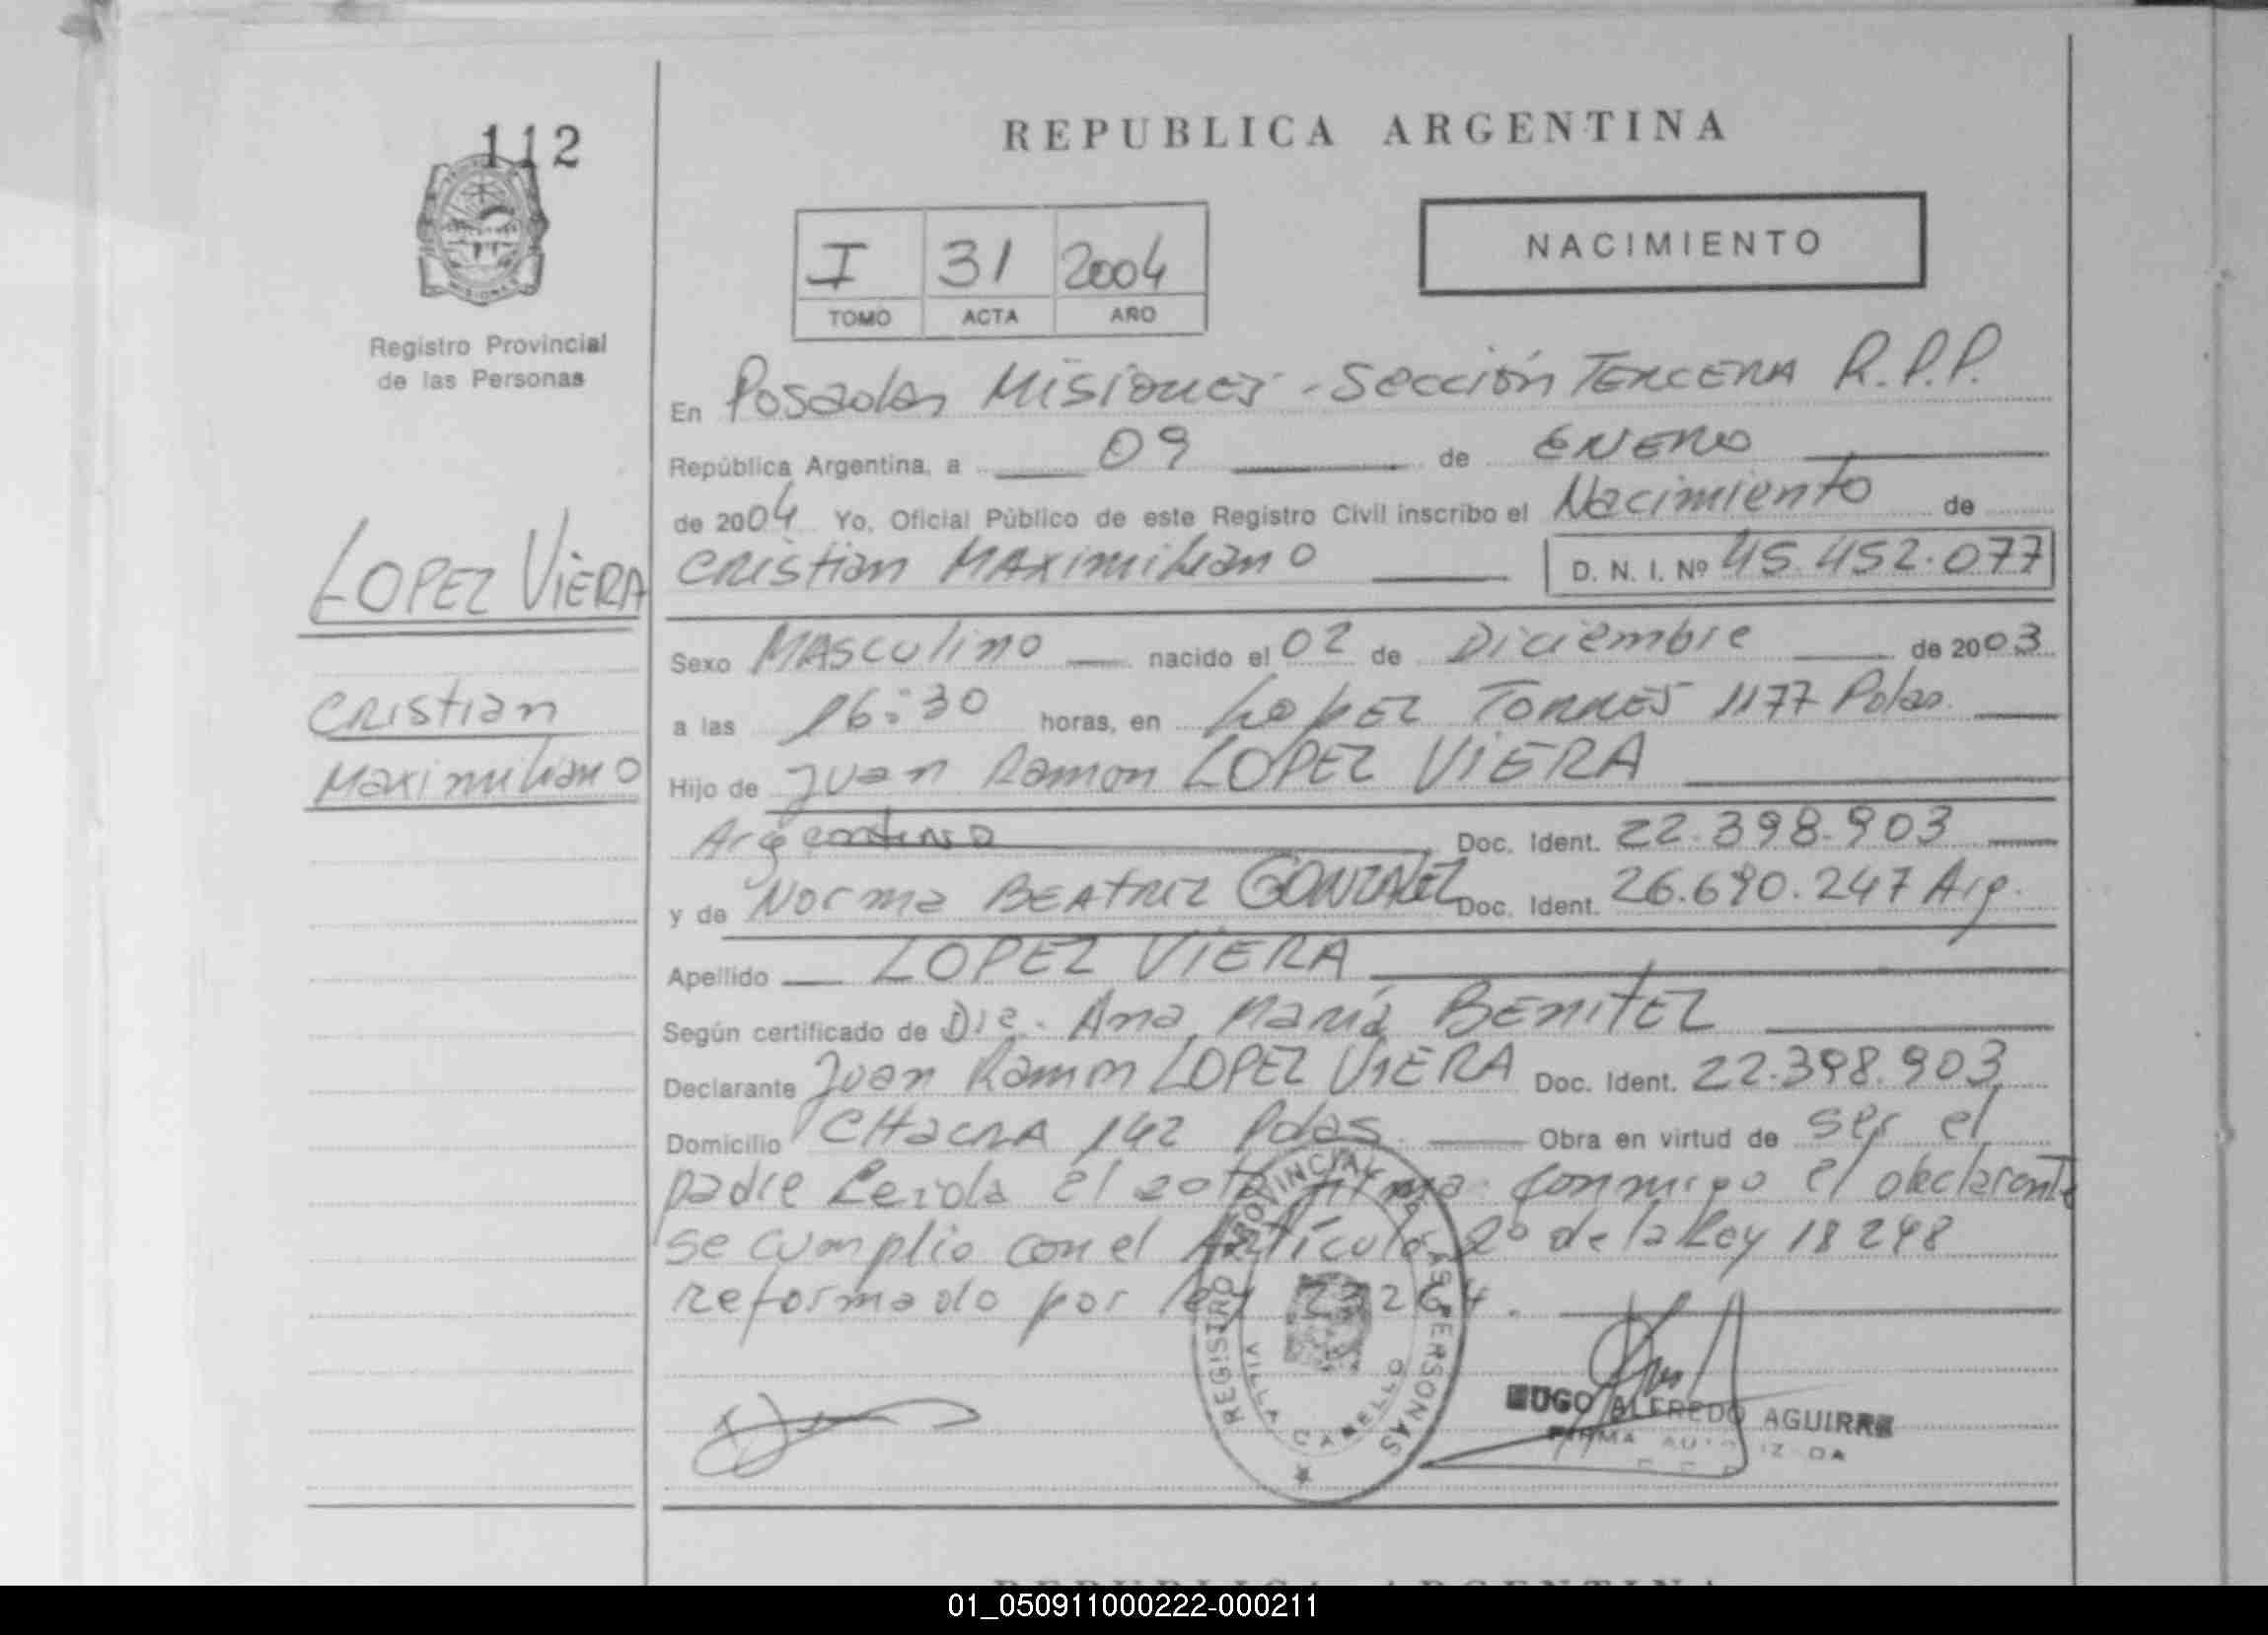 112
REPUBLICA ARGENTINA
I 31 2004
TOMO ACTA AÑO
NACIMIENTO
Registro Provincial
de las Personas
En Posadas Misiones - Sección TERCERA R.P.P.
República Argentina, a 09 de ENERO
de 2004 Yo, Oficial Público de este Registro Civil inscribo el Nacimiento de
LOPEZ VIERA
CRistian MAximiliano D. N. I. Nº 45.452.077
Sexo MASculino nacido el 02 de Diciembre de 2003
CRistian
a las 16:30 horas, en Lopez TORRES 1177 Pdas.
Maximiliano
Hijo de Juan Ramon LOPEZ VIERA
Argentino Doc. Ident. 22.398.903
y de Norma BEAtRIZ GONZALEZ Doc. Ident. 26.690.247 Arg.
Apellido LOPEZ VIERA
Según certificado de Dra. Ana María BENITEZ
Declarante Juan Ramon LOPEZ VIERA Doc. Ident. 22.398.903
Domicilio CHacRA 142 Pdas. Obra en virtud de ser el
padre Leida el acta firma conmigo el declarante
se cumplio con el Artículo 2º de la Ley 18248
reformado por ley 23264.
REGISTRO PROVINCIAL DE LAS PERSONAS
VILLA CABELLO
HUGO ALFREDO AGUIRRE
FIRMA AUTORIZADA
REPUBLICA ARGENTINA
01_050911000222-000211